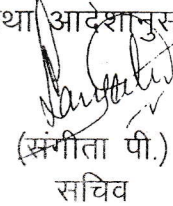 आदेशानुस
(संगीता पी.)
सचिव